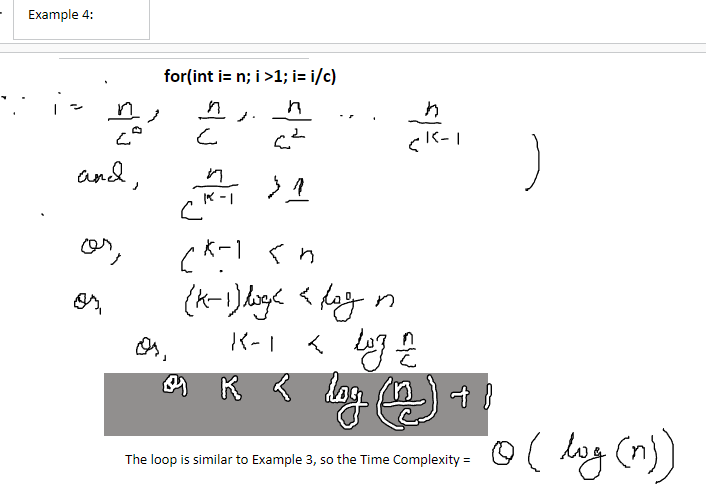 Example 4:
for(int i= n; i >1; i= i/c)
∵ i = n/c⁰, n/c, n/c² ... n/c^(K-1) )
and, n/c^(K-1) > 1
or, c^(K-1) < n
or, (K-1) log c < log n
or, K-1 < log n/c
or K < log (n/c) + 1
The loop is similar to Example 3, so the Time Complexity = O ( log (n))